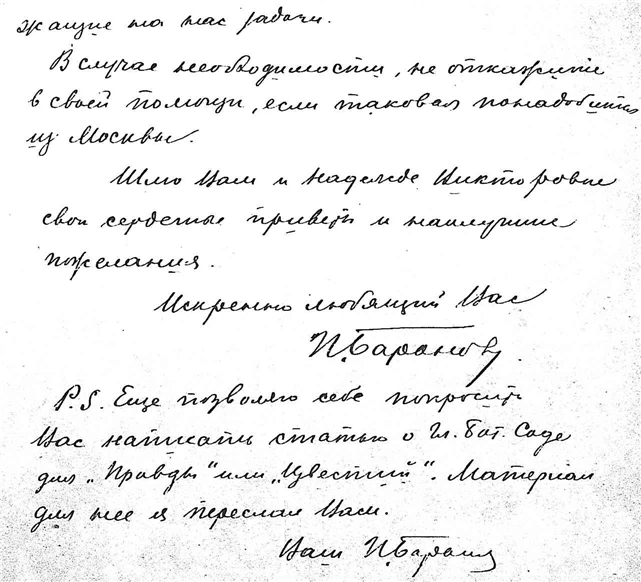 жащие на нас задачи.
В случае необходимости, не откажите
в своей помощи, если таковая понадобится
из Москвы.
Шлю Вам и Надежде Викторовне
свои сердечные приветы и наилучшие
пожелания.
Искренно любящий Вас
П. Баранов.
P.S. Еще позволяю себе попросить
Вас написать статью о Гл. Бот. Саде
для „Правды“ или „Известий“. Материал
для нее я переслал Вам.
Ваш П. Баранов